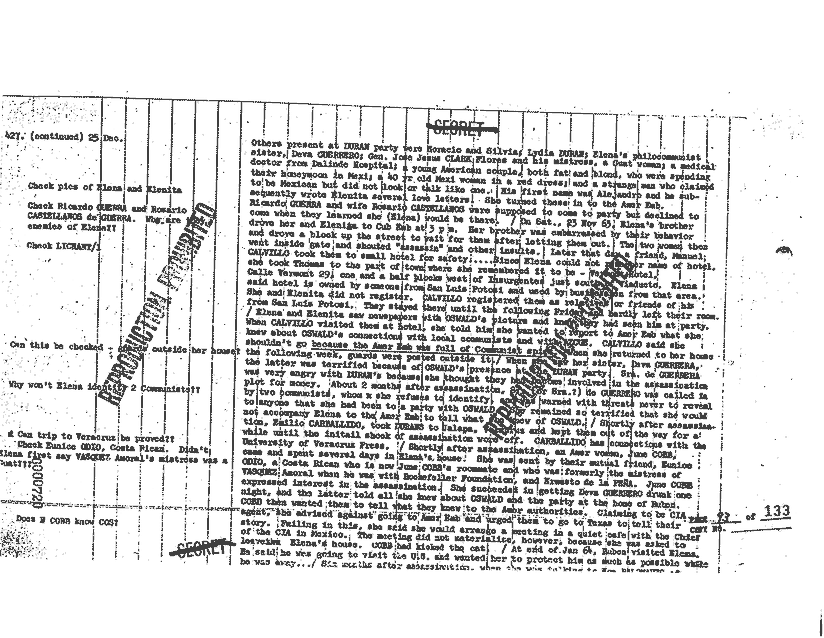 SECRET
427. (continued) 25 Dec.
Check pics of Elena and Elenita
Check Ricardo GUERRA and Rosario
CASTELLANOS de GUERRA. Why are
enemies of Elena??
Check LICHANT/1
Can this be checked - guards outside her house?
Why won't Elena identify 2 Communists??
Can trip to Veracruz be proved??
Check Eunice ODIO, Costa Rican. Didn't
Elena first say VASQUEZ Amoral's mistress was a
0000720
Does E COBB know COS?
SECRET
Others present at DURAN party were Horacio and Silvia; Lydia DURAN; Elena's philocommunist
sister, Deva GUERRERO; Gen. Jose Jesus CLARK Flores and his mistress, a Guat woman; a medical
doctor from Dalinde Hospital; a young American couple, both fat and blond, who were spending
their honeymoon in Mexi; a 40 yr old Mexi woman in a red dress; and a strange man who claimed
to be Mexican but did not look or talk like one. His first name was Alejandro and he sub-
sequently wrote Elenita several love letters. She turned these in to the Amer Emb.
Ricardo GUERRA and wife Rosario CASTELLANOS were supposed to come to party but declined to
come when they learned she (Elena) would be there. / On Sat., 23 Nov 63, Elena's brother
drove her and Elenita to Cub Emb at 3 p m. Her brother was embarrassed by their behavior
and drove a block up the street to wait for them after letting them out. The two women then
went inside gate and shouted "assassin" and other insults. Later that day friend, Manuel
CALVILLO took them to small hotel for safety....Since Elena could not name of hotel,
she took Thomas to the part of town where she remembered it to be - Hotel,
Calle Vermont 29, one and a half blocks west of Insurgentes just south Viaducto. Elena
said hotel is owned by someone from San Luis Potosi and used by from that area.
She and Elenita did not register. CALVILLO registered them as relatives or friends of his
from San Luis Potosi. They stayed there until the following Friday hardly left their room.
/ Elena and Elenita saw newspapers with OSWALD's picture and knew they had seen him at party.
When CALVILLO visited them at hotel, she told him she wanted to report to Amer Emb what she
knew about OSWALD's connections with local communists and with CALVILLO said she
shouldn't go because the Amer Emb was full of Communist spies. When she returned to her house
the following week, guards were posted outside it./ When she her sister, Deva GUERRERA,
the latter was terrified because of OSWALD's presence at DURAN party. Sra. de GUERRERA
was very angry with DURAN's because she thought they had involved in the assassination
plot for money. About 2 months after assassination, Sra.?) de GUERRERO was called in
by two communists, whom x she refuses to identify warned with threats never to reveal
to anyone that she had been to a party with OSWALD remained so terrified that she would
not accompany Elena to the Amer Emb to tell what knew of OSWALD. / Shortly after assassina-
tion, Emilio CARBALLIDO, took DURANS to Jalapa, and kept them out of the way for a
while until the initail shock of assassination wore off. CARBALLIDO has connections with the
University of Veracruz Press. / Shortly after assassination, an Amer woman, June COBB,
came and spent several days in Elena's house. She was sent by their mutual friend, Eunice
ODIO, a Costa Rican who is now June COBB's roommate and who was formerly the mistress of
VASQUEZ Amoral when he was with Rockefeller Foundation, and Ernesto de la PEÑA. June COBB
expressed interest in the assassination. She succeeded in getting Deva GUERRERO drunk one
night, and the latter told all she knew about OSWALD and the party at the home of Ruben.
COBB then wanted them to tell what they knew to the Amer authorities. Claiming to be CIA
agent, she advised against going to Amer Emb and urged them to go to Texas to tell their
story. Failing in this, she said she would arrange a meeting in a quiet cafe with the Chief
of the CIA in Mexico. The meeting did not materialize, however, because she was asked to
leave Elena's house. COBB had kicked the cat. / At end of Jan 64, Ruben visited Elena.
He said he was going to visit the U.S. and wanted her to protect him as much as possible while
he was away.../ Six months after assassination, when she was talking to
93 of 133
COPY NO.
REPRODUCTION PROHIBITED
REPRODUCTION PROHIBITED